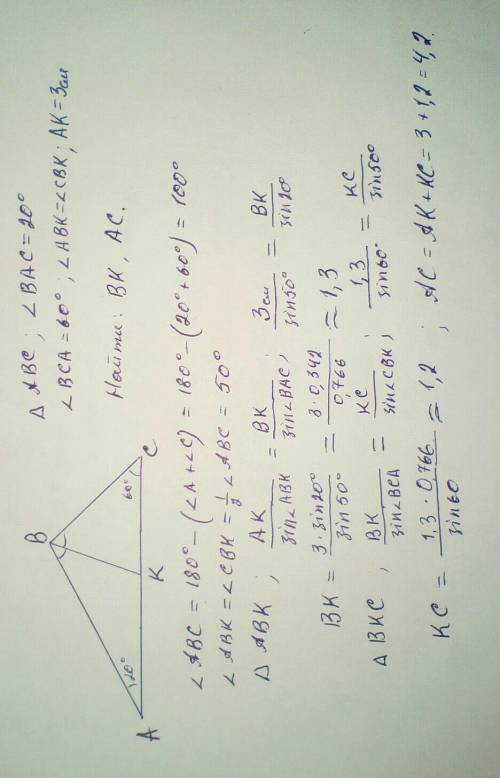 △ ABC ; ∠BAC = 20°
∠BCA = 60° ; ∠ABK = ∠CBK ; AK = 3см
Найти: BK, AC.
B
20°
60°
A
K
C
∠ABC = 180° − (∠A + ∠C) = 180° − (20° + 60°) = 100°
∠ABK = ∠CBK = 1/2 ∠ABC = 50°
△ ABK ; AK/sin∠ABK = BK/sin∠BAC ; 3см/sin50° = BK/sin20
BK = 3·sin20°/sin50° = 3·0,342/0,766 ≈ 1,3
△ BKC , BK/sin∠BCA = KC/sin∠CBK ; 1,3/sin60° = KC/sin50°
KC = 1,3·0,766/sin60 ≈ 1,2 ; AC = AK + KC = 3 + 1,2 = 4,2.